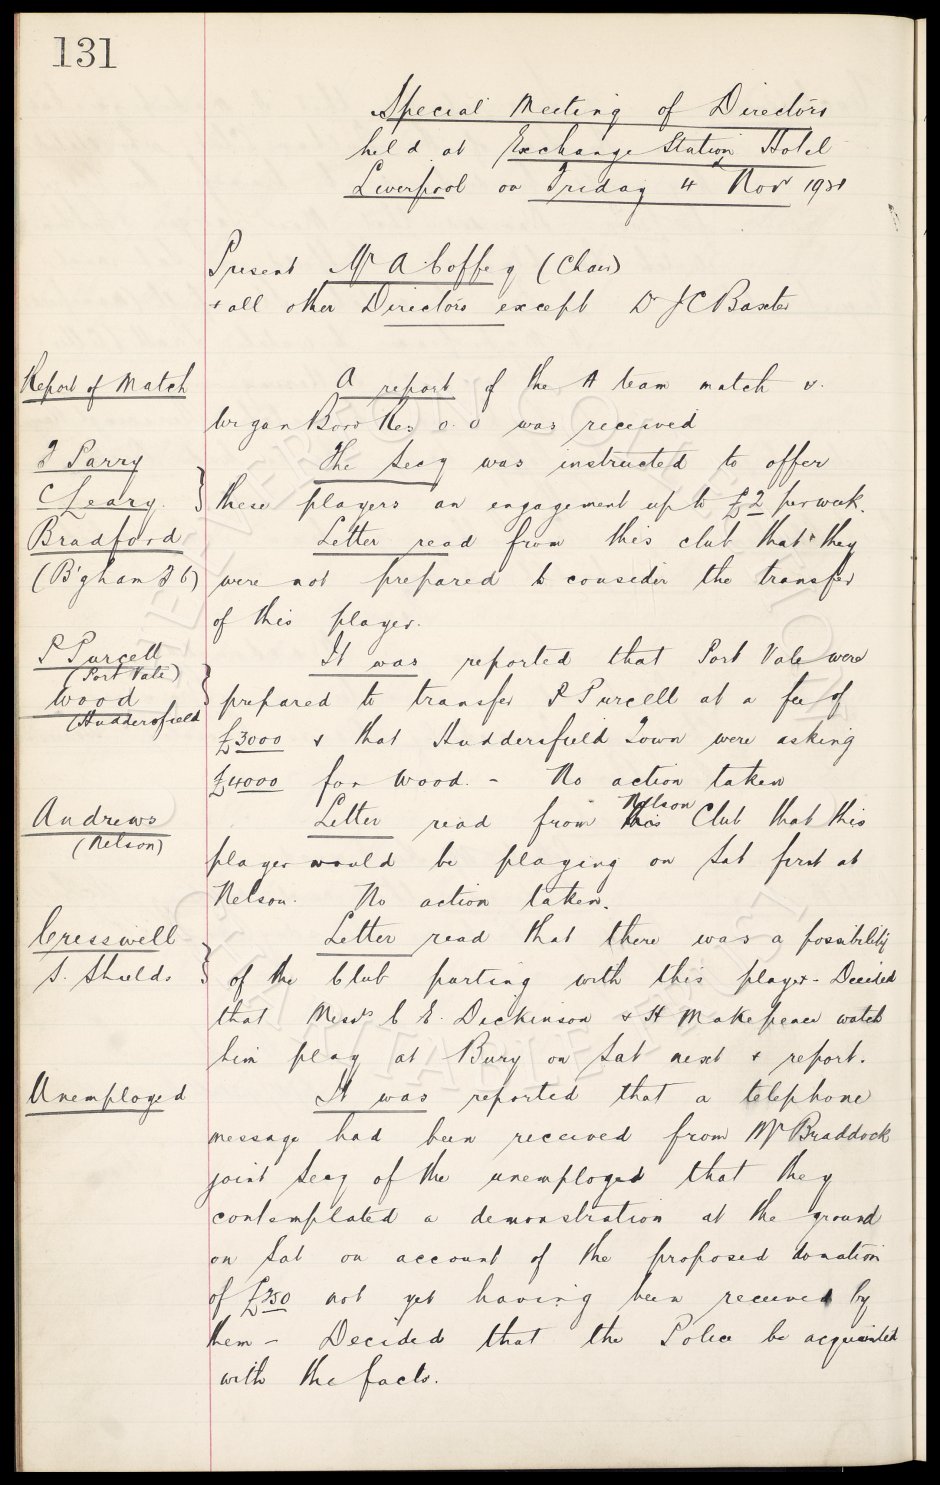 131
Special Meeting of Directors
held at Exchange Station Hotel
Liverpool on Friday 4 Nov 1921
Present Mr A Coffey (Chair)
& all other Directors except Dr J C Baxter
Report of Match
A report of the A team match v.
Wigan Boro Res 0.0 was received
J Parry
C Leary
The Secy was instructed to offer
these players an engagement up to £2 per week.
Bradford
(B'gham F C)
Letter read from this club that they
were not prepared to consider the transfer
of this player.
P Purcell
(Port Vale)
Wood
(Huddersfield
It was reported that Port Vale were
prepared to transfer P Purcell at a fee of
£3000 & that Huddersfield Town were asking
£4000 for Wood. - No action taken
Andrews
(Nelson)
Letter read from Nelson Club that this
player would be playing on Sat first at
Nelson. No action taken.
Cresswell
S. Shields
Letter read that there was a possibility
of the Club parting with this player - Decided
that Messrs C E. Dickinson & H Makepeace watch
him play at Bury on Sat next & report.
Unemployed
It was reported that a telephone
message had been received from Mr Braddock
joint Secy of the unemployed that they
contemplated a demonstration at the ground
on Sat on account of the proposed donation
of £250 not yet having been received by
them - Decided that the Police be acquainted
with the facts.